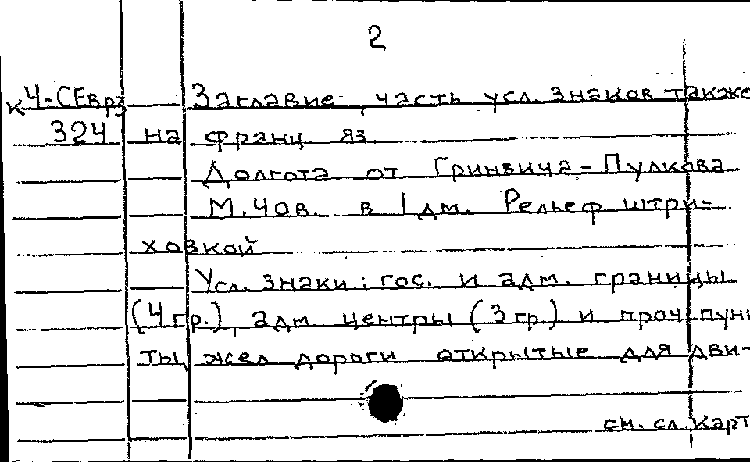 2
К Ч-СЕвр3 Заглавие, часть усл. знаков также
324 на франц. яз.
Долгота от Гринвича-Пулкова
М. 40в. в 1 дм. Рельеф штри-
ховкой
Усл. знаки: гос. и адм. границы
(4 гр.), адм. центры (3 гр.) и проч. пунк
ты, жел. дороги открытые для дви-
см. сл. карт